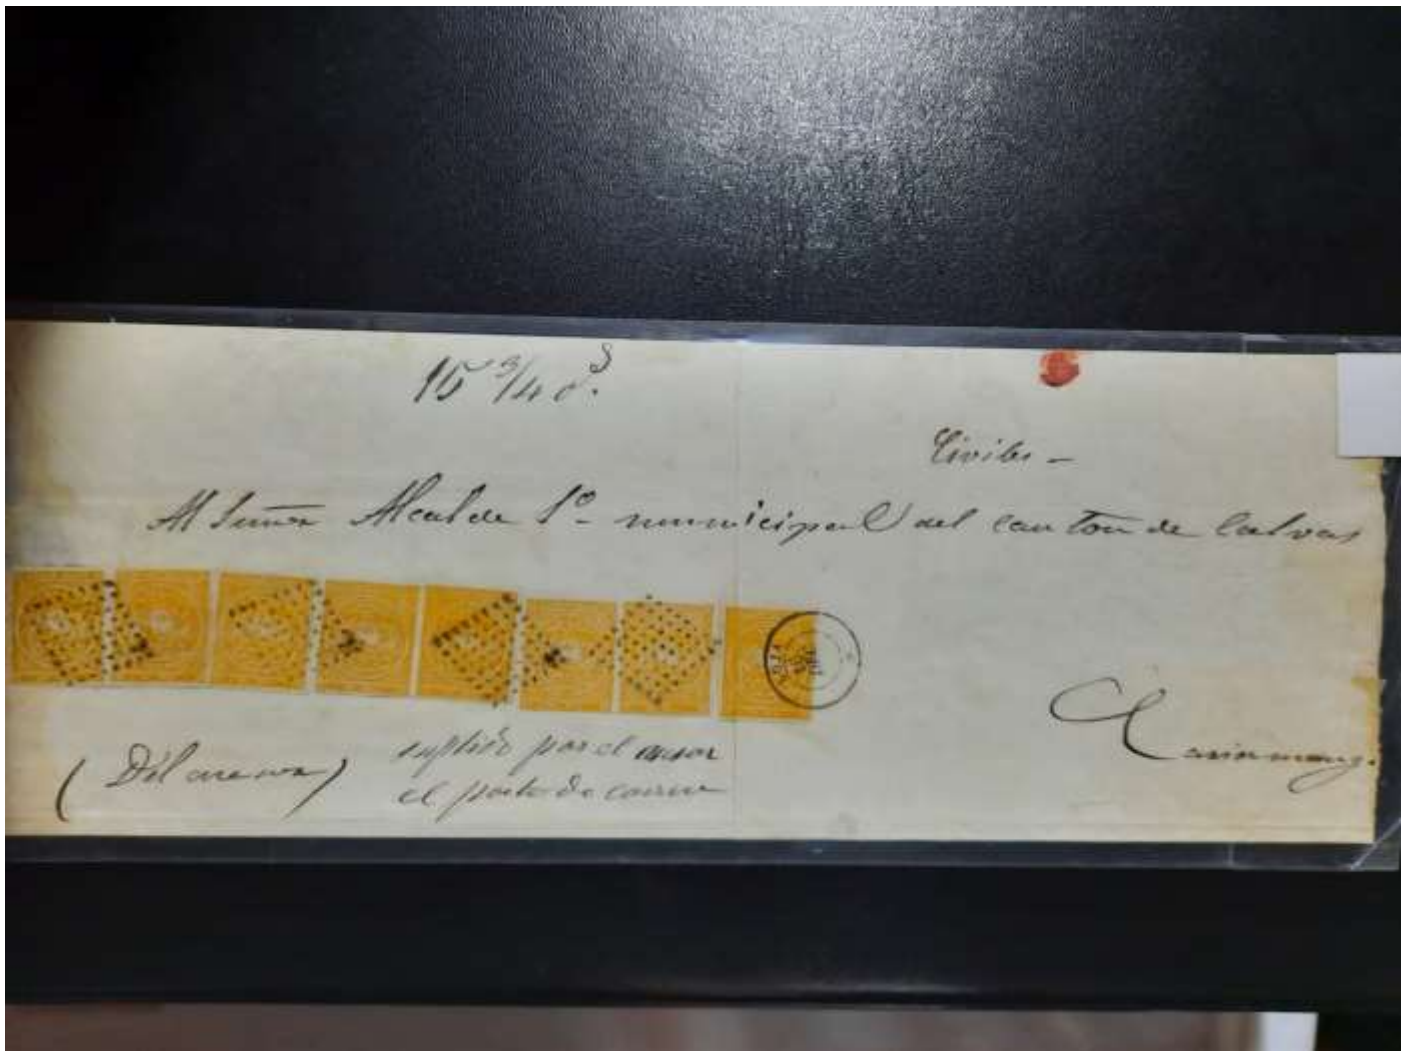 15 3/4 os.
Civiles -
Al Señor Alcalde 1º municipal del canton de Calvas
(Del
suplido por el
el porte de correo
Cariamanga.